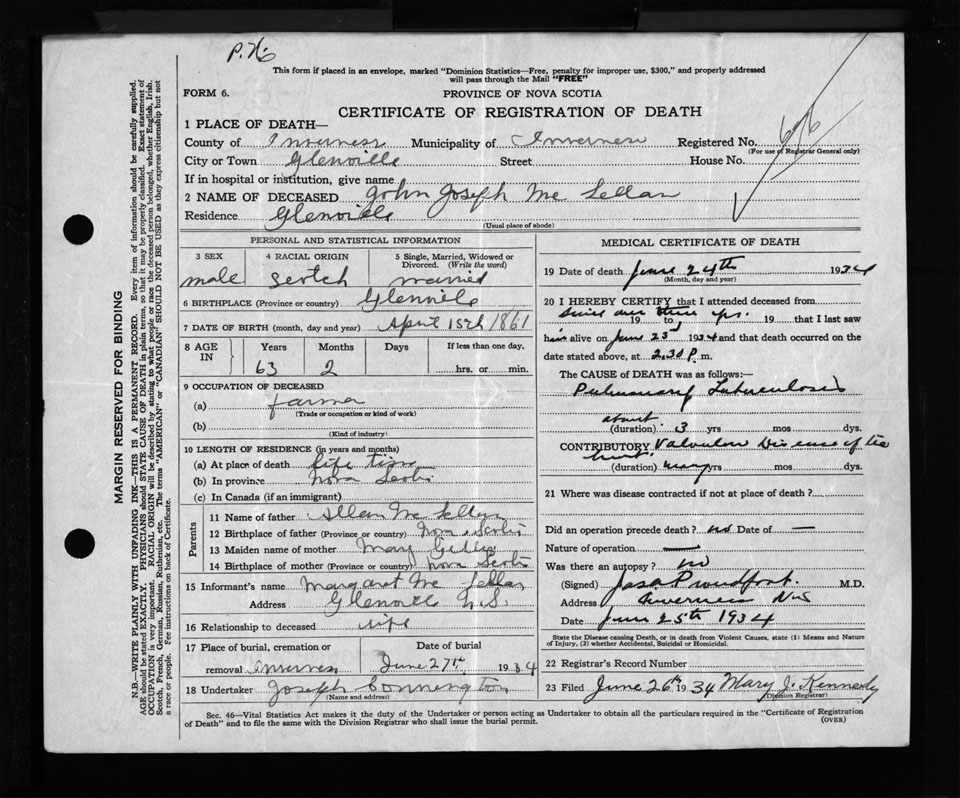 P.H.
This form if placed in an envelope, marked "Dominion Statistics—Free, penalty for improper use, $300," and properly addressed
will pass through the Mail "FREE"
FORM 6.
PROVINCE OF NOVA SCOTIA
CERTIFICATE OF REGISTRATION OF DEATH
1 PLACE OF DEATH—
County of Inverness Municipality of Inverness Registered No. 676
(For use of Registrar General only)
City or Town Glenville Street House No.
If in hospital or institution, give name
2 NAME OF DECEASED John Joseph Mc Lellan
Residence Glenville
(Usual place of abode)
PERSONAL AND STATISTICAL INFORMATION
3 SEX 4 RACIAL ORIGIN 5 Single, Married, Widowed or Divorced. (Write the word)
male Scotch married
6 BIRTHPLACE (Province or country) Glenville
7 DATE OF BIRTH (month, day and year) April 15th 1861
8 AGE IN Years Months Days If less than one day,
63 2 hrs. or min.
9 OCCUPATION OF DECEASED
(a) farmer
(Trade or occupation or kind of work)
(b)
(Kind of industry)
10 LENGTH OF RESIDENCE (in years and months)
(a) At place of death life time
(b) In province Nova Scotia
(c) In Canada (if an immigrant)
Parents
11 Name of father Allan Mc Lellan
12 Birthplace of father (Province or country) Nova Scotia
13 Maiden name of mother Mary Gillis
14 Birthplace of mother (Province or country) Nova Scotia
15 Informant's name Margaret Mc Lellan
Address Glenville N.S.
16 Relationship to deceased wife
17 Place of burial, cremation or removal Inverness Date of burial June 27th 1934
18 Undertaker Joseph Connington
(Name and address)
MEDICAL CERTIFICATE OF DEATH
19 Date of death June 24th 1934
(Month, day and year)
20 I HEREBY CERTIFY that I attended deceased from
19 to 19 that I last saw
him alive on June 23rd 1934 and that death occurred on the
date stated above, at 2.30 P. m.
The CAUSE OF DEATH was as follows:—
Pulmonary Tuberculosis
about
(duration) 3 yrs mos dys.
CONTRIBUTORY Valvular Disease of the
heart.
(duration) many yrs mos. dys.
21 Where was disease contracted if not at place of death?
Did an operation precede death? no Date of —
Nature of operation —
Was there an autopsy? no
(Signed) Jas. Proudfoot. M.D.
Address Inverness N.S.
Date June 25th 1934
State the Disease causing Death, or in death from Violent Causes, state (1) Means and Nature
of Injury, (2) whether Accidental, Suicidal or Homicidal.
22 Registrar's Record Number
23 Filed June 26th 1934 Mary J. Kennedy
(Division Registrar)
Sec. 46—Vital Statistics Act makes it the duty of the Undertaker or person acting as Undertaker to obtain all the particulars required in the "Certificate of Registration
of Death" and to file the same with the Division Registrar who shall issue the burial permit.
(OVER)
MARGIN RESERVED FOR BINDING
N.B.—WRITE PLAINLY WITH UNFADING INK—THIS IS A PERMANENT RECORD. Every item of information should be carefully supplied.
AGE should be stated EXACTLY. PHYSICIANS should STATE CAUSE OF DEATH in plain terms, so that it may be properly classified. Exact statement of
OCCUPATION is very important. RACIAL ORIGIN will be described by stating to what people or race the deceased person belonged, whether English, Irish,
Scotch, French, German, Russian, Ruthenian, etc. The terms "AMERICAN" or "CANADIAN" SHOULD NOT BE USED as they express citizenship but not
a race or people. Fee instructions on back of Certificate.